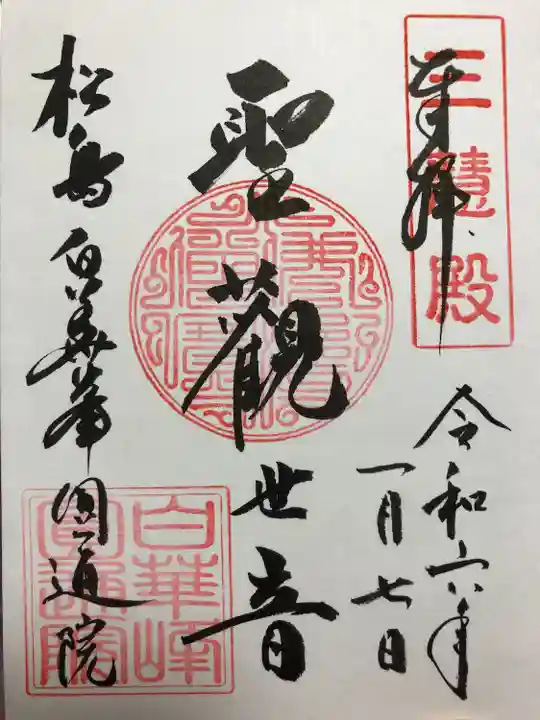 奉拝
三慧殿
令和六年
一月七日
聖観世音
松島 白華峰 円通院
白華峰
圓通院